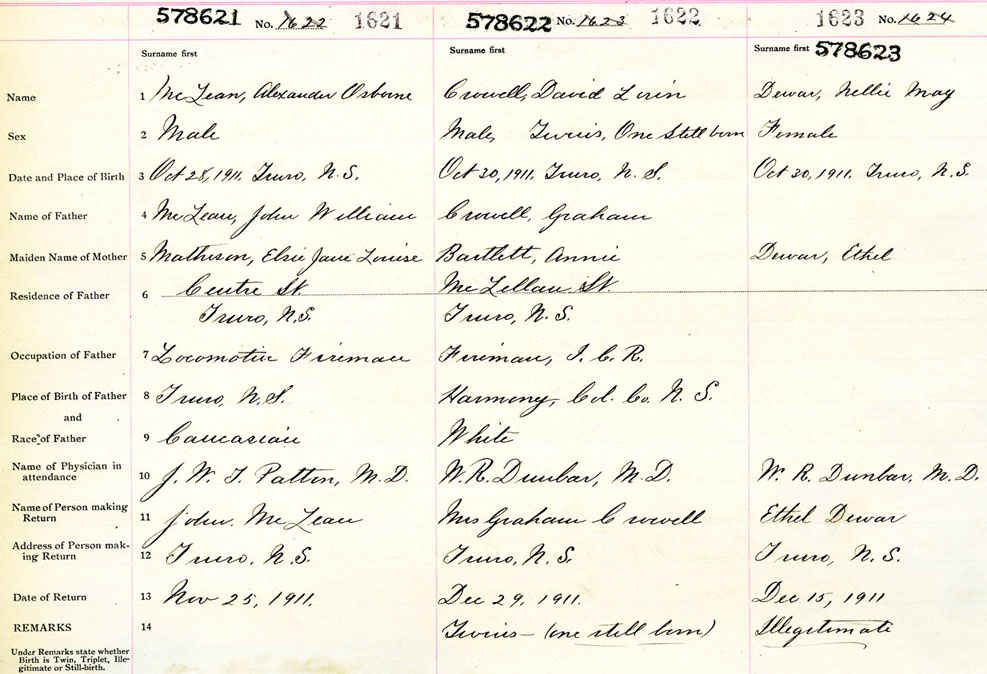 578621 No. 1622 1621 578622 No. 1623 1622 1623 No. 1624
Surname first Surname first Surname first 578623
Name 1 McLean, Alexander Osborne Crowell, David Lorin Dewar, Nellie May
Sex 2 Male Male, Twins, One Still born Female
Date and Place of Birth 3 Oct 28, 1911. Truro, N.S. Oct 30, 1911. Truro, N.S. Oct 30, 1911. Truro, N.S.
Name of Father 4 McLean, John William Crowell, Graham
Maiden Name of Mother 5 Matheson, Elsie Jane Louise Bartlett, Annie Dewar, Ethel
Residence of Father 6 Centre St. McLellan St.
Truro, N.S. Truro, N.S.
Occupation of Father 7 Locomotive Fireman Fireman, I.C.R.
Place of Birth of Father 8 Truro, N.S. Harmony, Col. Co. N.S.
and
Race of Father 9 Caucasian White
Name of Physician in
attendance 10 J. W. T. Patton, M.D. W.R. Dunbar, M.D. W. R. Dunbar, M.D.
Name of Person making
Return 11 John McLean Mrs Graham Crowell Ethel Dewar
Address of Person mak-
ing Return 12 Truro, N.S. Truro, N.S. Truro, N.S.
Date of Return 13 Nov 25, 1911. Dec 29, 1911. Dec 15, 1911
REMARKS 14 Twins - (one still born) Illegitimate
Under Remarks state whether
Birth is Twin, Triplet, Ille-
gitimate or Still-birth.